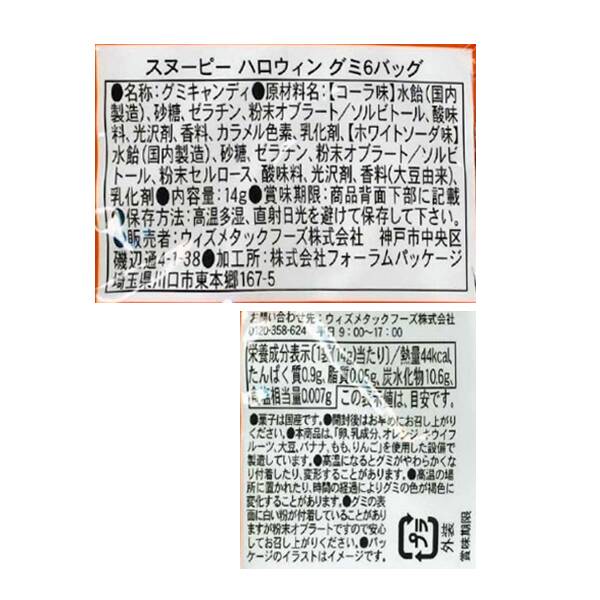 スヌーピー ハロウィン グミ6バッグ
●名称:グミキャンディ●原材料名:【コーラ味】水飴(国内
製造)、砂糖、ゼラチン、粉末オブラート/ソルビトール、酸味
料、光沢剤、香料、カラメル色素、乳化剤、【ホワイトソーダ味】
水飴(国内製造)、砂糖、ゼラチン、粉末オブラート/ソルビ
トール、粉末セルロース、酸味料、光沢剤、香料(大豆由来)、
乳化剤●内容量:14g●賞味期限:商品背面下部に記載
●保存方法:高温多湿、直射日光を避けて保存して下さい。
●販売者:ウィズメタックフーズ株式会社 神戸市中央区
磯辺通4-1-38●加工所:株式会社フォーラムパッケージ
埼玉県川口市東本郷167-5
お問い合わせ先:ウィズメタックフーズ株式会社
0120-358-624 平日 9:00〜17:00
栄養成分表示〔1袋(14g)当たり〕/熱量44kcal、
たんぱく質0.9g、脂質0.05g、炭水化物10.6g、
食塩相当量0.007g この表示値は、目安です。
●菓子は国産です。●開封後はお早めにお召し上がり
ください。●本商品は、「卵、乳成分、オレンジ、キウイフ
ルーツ、大豆、バナナ、もも、りんご」を使用した設備で
製造しています。●高温になるとグミがやわらかくな
り付着したり、変形することがあります。●高温の場
所に置かれたり、時間の経過によりグミの色が褐色に
変化することがあります。●グミの表
面に白い粉が付着していることがあり
ますが粉末オブラートですので安心
してお召し上がりください。●パッ
ケージのイラストはイメージです。
プラ
外装
賞味期限